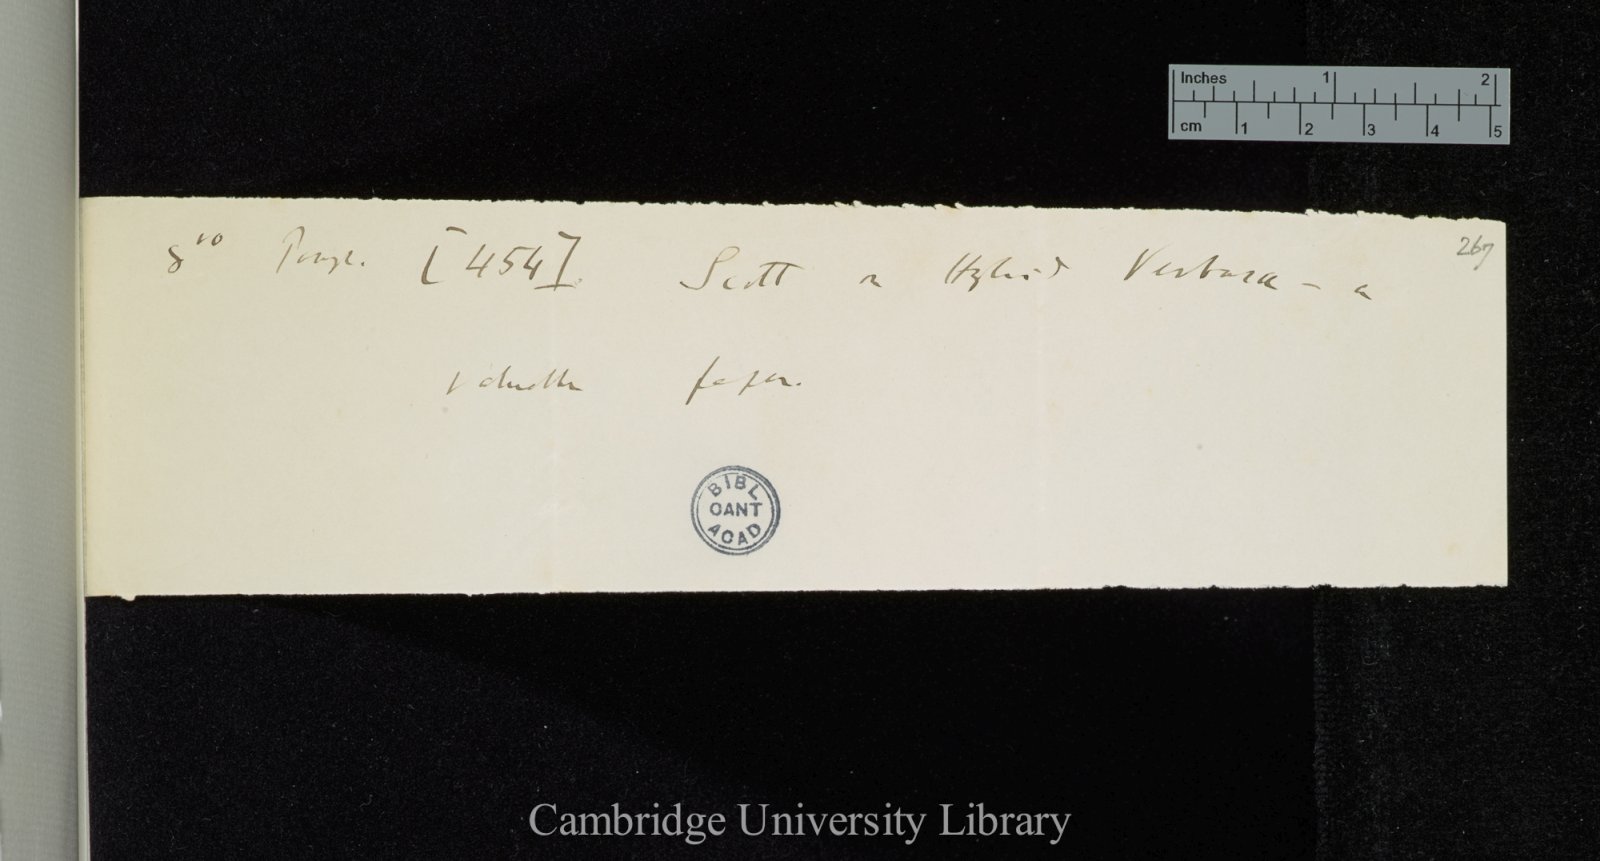 Inches 1 2
cm 1 2 3 4 5
267
8vo [454] Scott on Hybrid Verbasca – a
valuable paper.
BIBL
CANT
ACAD
Cambridge University Library